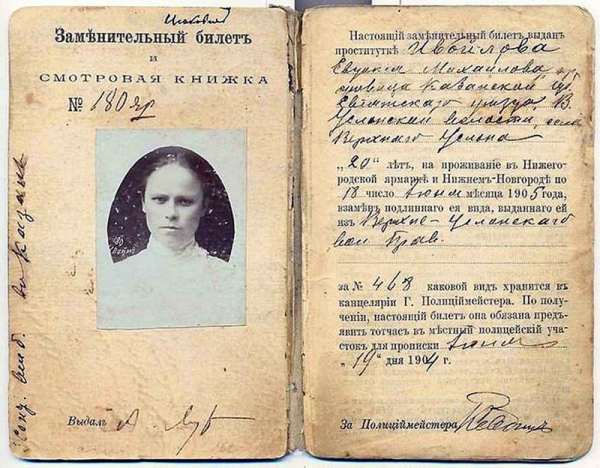 Замѣнительный билетъ
и
СМОТРОВАЯ КНИЖКА
№ 180
въ Казань
Выдалъ
Настоящій замѣнительный билетъ выданъ
проституткѣ
Евдокія Михайлова
Казанской губ.
уѣзда, В.
Услонской волости, села
Верхняго Услона
„20" лѣтъ, на проживаніе въ Нижего-
родской ярмаркѣ и Нижнемъ-Новгородѣ по
18 число Іюня мѣсяца 1905 года,
взамѣнъ подлиннаго ея вида, выданнаго ей
изъ Верхне-Услонскаго
вол. Прав.
за № 468 каковой видъ хранится въ
канцеляріи Г. Полиціймейстера. По полу-
ченіи, настоящій билетъ она обязана предъ-
явить тотчасъ въ мѣстный полицейскій уча-
стокъ для прописки Іюня
„19" дня 1904 г.
За Полиціймейстера